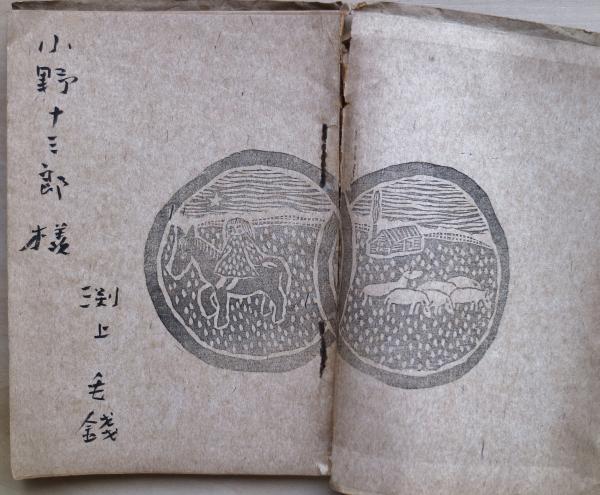 小野十三郎様
渕上毛錢